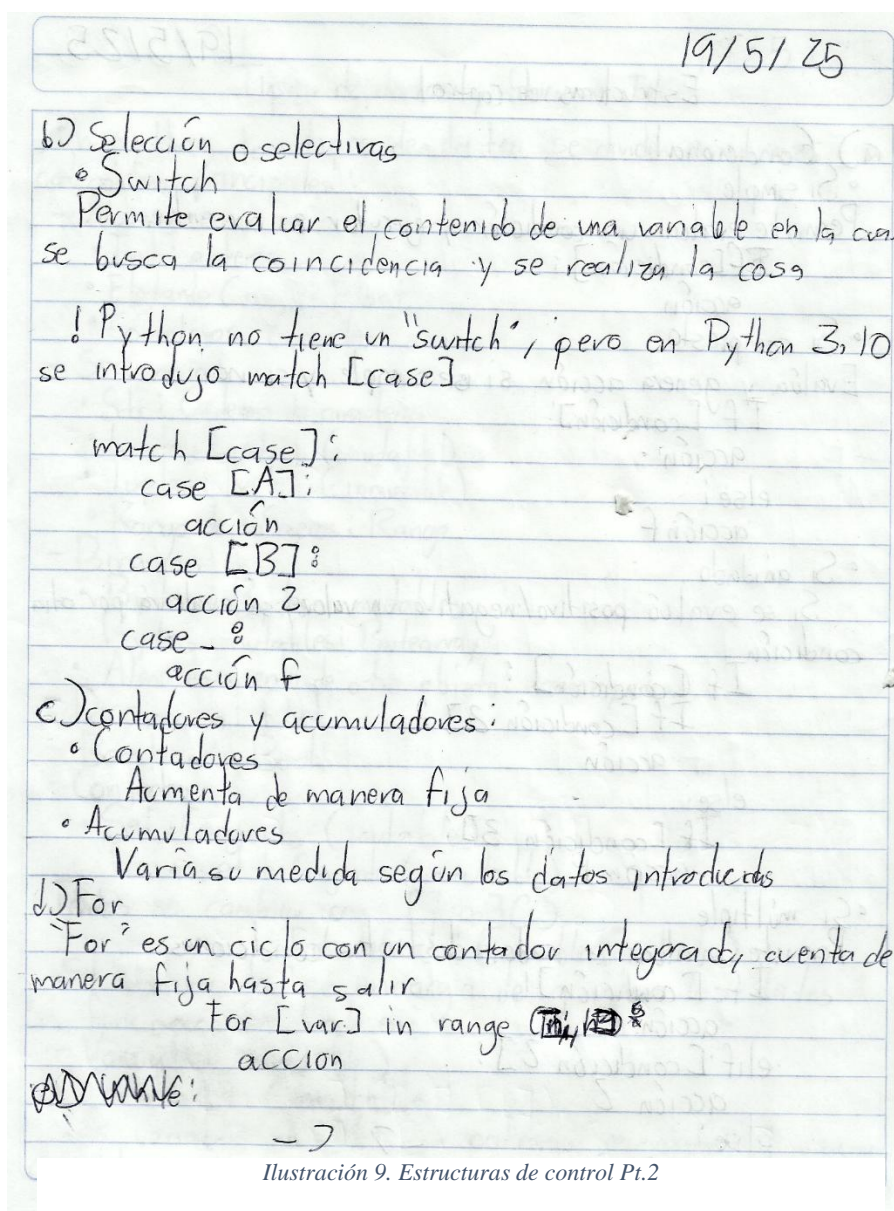 19/5/25
b) Selección o selectivas
• Switch
Permite evaluar el contenido de una variable en la cua
se busca la coincidencia y se realiza la cosa
! Python no tiene un "switch", pero en Python 3,10
se introdujo match [case]
match [case]:
case [A]:
acción
case [B]:
acción 2
case _:
acción f
c) contadores y acumuladores:
• Contadores
Aumenta de manera fija
• Acumuladores
Varía su medida según los datos introducidos
d) For
"For" es un ciclo con un contador integorado, cuenta de
manera fija hasta salir
For [var] in range
acción
->
Ilustración 9. Estructuras de control Pt.2